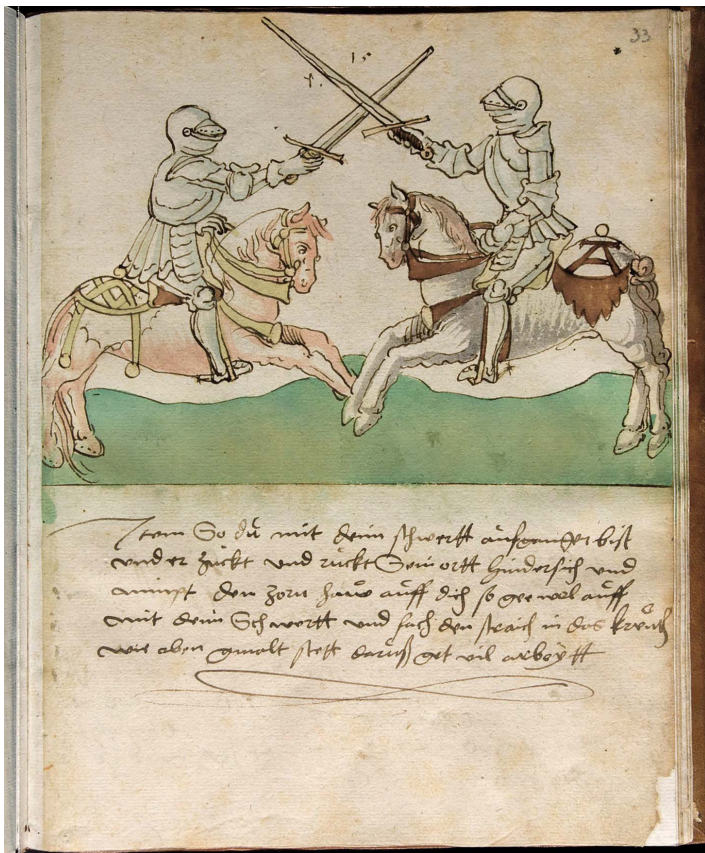 33
Item So dü mit deim schwertt aüfgangen bist
und er zuckt und rückt Sein ortt hindersich und
nimpt den zorn haüw aüff dich so gee wol aüff
mit deim Schwertt und fach den straich in das kreütz
wie oben gmalt stett darüß get vil arbeytt